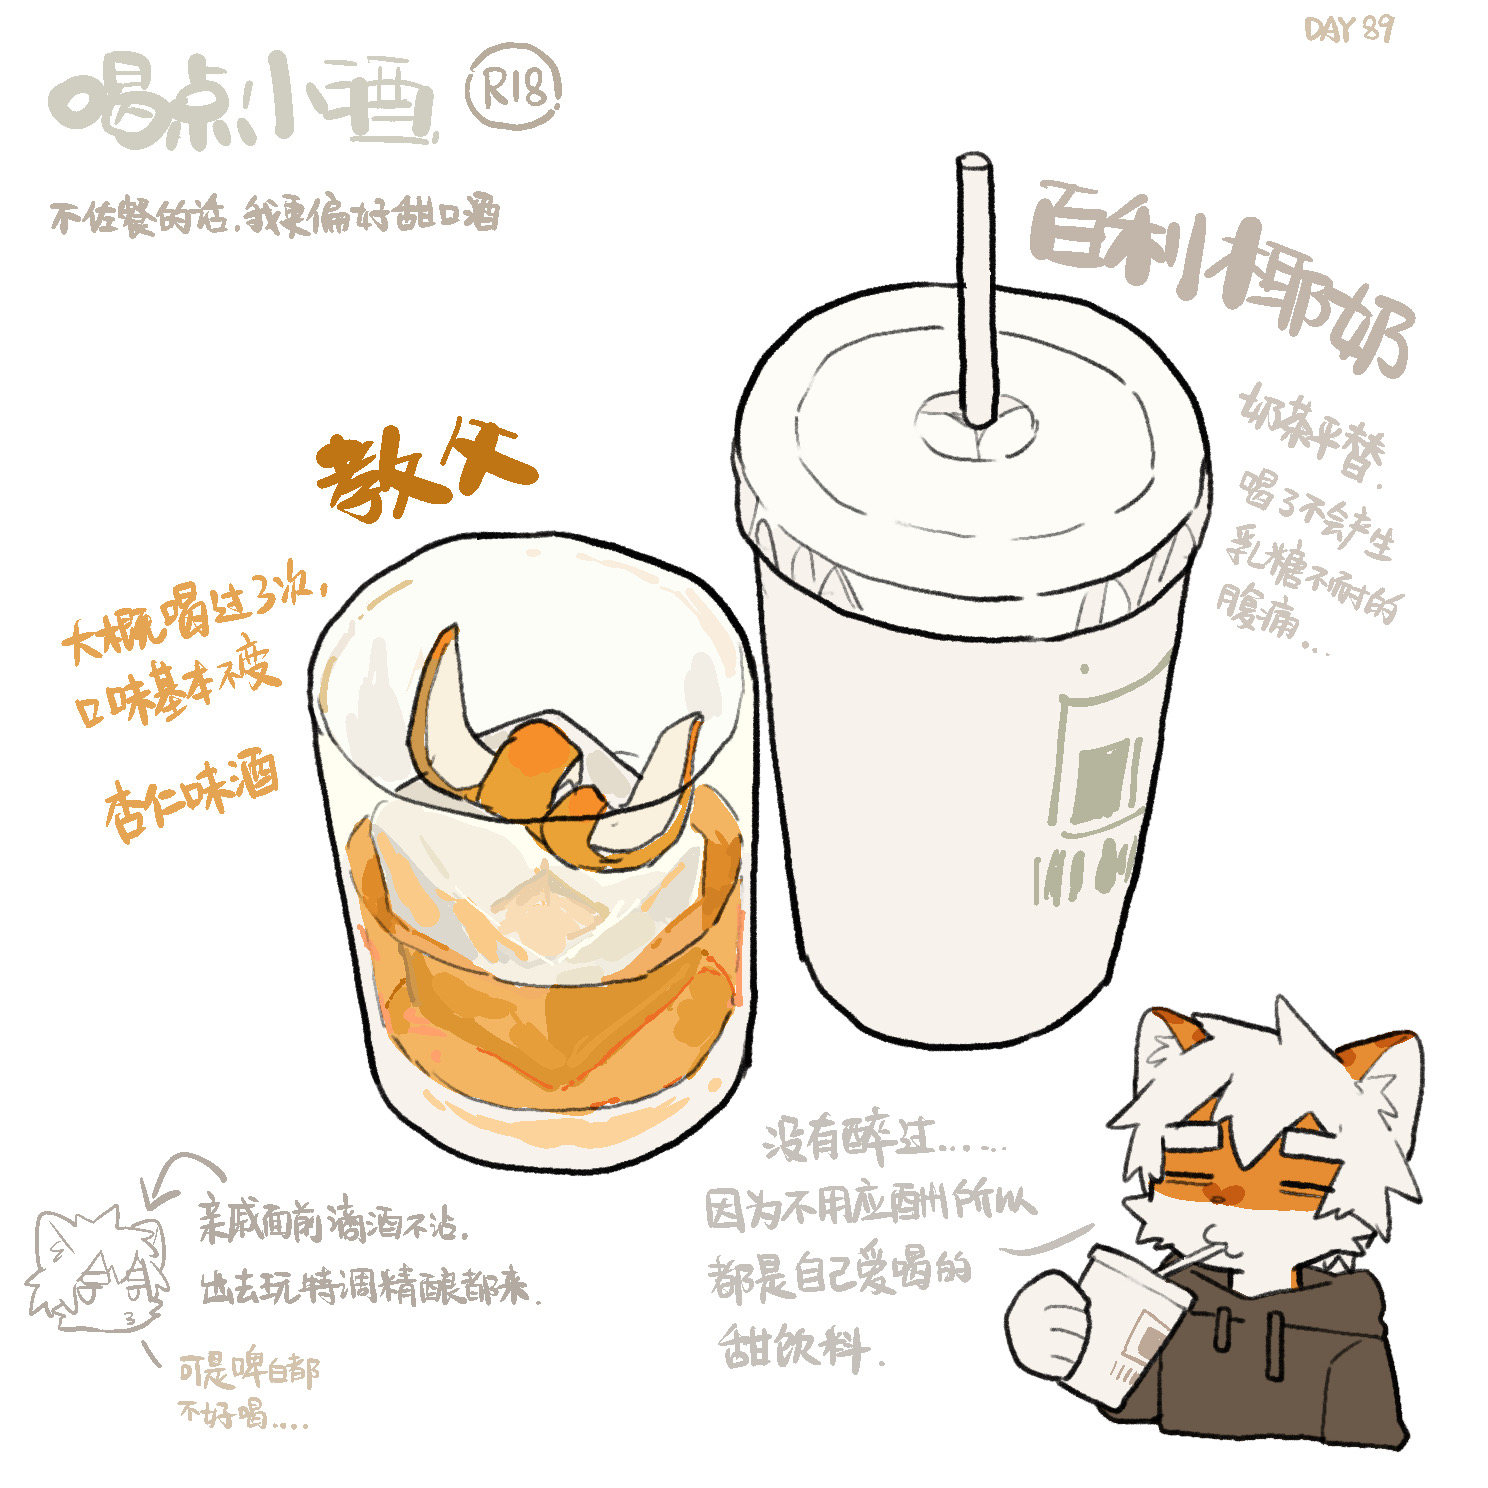 DAY 89
喝点小酒 R18
不佐餐的话，我更偏好甜口酒
百利椰奶
奶茶平替.
喝了不会产生
乳糖不耐的
腹痛...
教父
大概喝过3次，
口味基本不变
杏仁味酒
没有醉过......
因为不用应酬所以
都是自己爱喝的
甜饮料.
亲戚面前滴酒不沾.
出去玩特调精酿都来.
可是啤白都
不好喝....